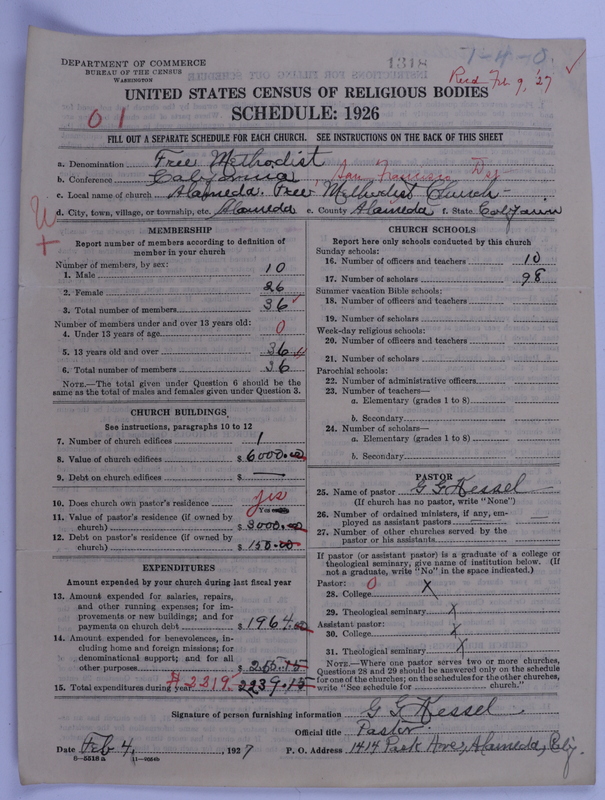 DEPARTMENT OF COMMERCE
BUREAU OF THE CENSUS
WASHINGTON
1318
7-4-0.
Recd Feb 9, '27
UNITED STATES CENSUS OF RELIGIOUS BODIES
SCHEDULE: 1926
01
FILL OUT A SEPARATE SCHEDULE FOR EACH CHURCH. SEE INSTRUCTIONS ON THE BACK OF THIS SHEET
a. Denomination Free Methodist
b. Conference California San Francisco Dist
c. Local name of church Alameda Free Methodist Church
d. City, town, village, or township, etc. Alameda e. County Alameda f. State California
MEMBERSHIP
Report number of members according to definition of member in your church
Number of members, by sex:
1. Male 10
2. Female 26
3. Total number of members 36
Number of members under and over 13 years old:
4. Under 13 years of age 0
5. 13 years old and over 36
6. Total number of members 36
NOTE.—The total given under Question 6 should be the same as the total of males and females given under Question 3.
CHURCH BUILDINGS
See instructions, paragraphs 10 to 12
7. Number of church edifices 1
8. Value of church edifices $ 6000.00
9. Debt on church edifices $ —
10. Does church own pastor's residence yes
Yes
11. Value of pastor's residence (if owned by church) $ 3000.00
12. Debt on pastor's residence (if owned by church) $ 150.00
EXPENDITURES
Amount expended by your church during last fiscal year
13. Amount expended for salaries, repairs, and other running expenses; for improvements or new buildings; and for payments on church debt $ 1964.00
14. Amount expended for benevolences, including home and foreign missions; for denominational support; and for all other purposes $ 255.15
15. Total expenditures during year $2219. 2239.15
CHURCH SCHOOLS
Report here only schools conducted by this church
Sunday schools:
16. Number of officers and teachers 10
17. Number of scholars 98
Summer vacation Bible schools:
18. Number of officers and teachers
19. Number of scholars
Week-day religious schools:
20. Number of officers and teachers
21. Number of scholars
Parochial schools:
22. Number of administrative officers
23. Number of teachers—
a. Elementary (grades 1 to 8)
b. Secondary
24. Number of scholars—
a. Elementary (grades 1 to 8)
b. Secondary
PASTOR
25. Name of pastor G G Kessel
(If church has no pastor, write "None")
26. Number of ordained ministers, if any, employed as assistant pastors
27. Number of other churches served by the pastor or his assistants
If pastor (or assistant pastor) is a graduate of a college or theological seminary, give name of institution below. (If not a graduate, write "No" in the space indicated.)
Pastor: 0
28. College X
29. Theological seminary X
Assistant pastor:
30. College X
31. Theological seminary X
NOTE.—Where one pastor serves two or more churches, Questions 28 and 29 should be answered only on the schedule for one of the churches; on the schedules for the other churches, write "See schedule for church."
Signature of person furnishing information G G Kessel
Official title Pastor
Date Feb 4, 1927 P. O. Address 1414 Park Ave, Alameda, Calif.
6—5518 a 11—9054b